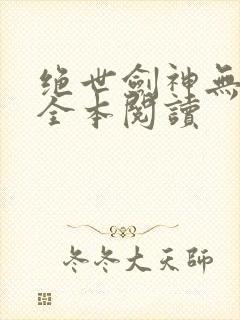 绝世劍神無
全本閱讀
冬冬大天師